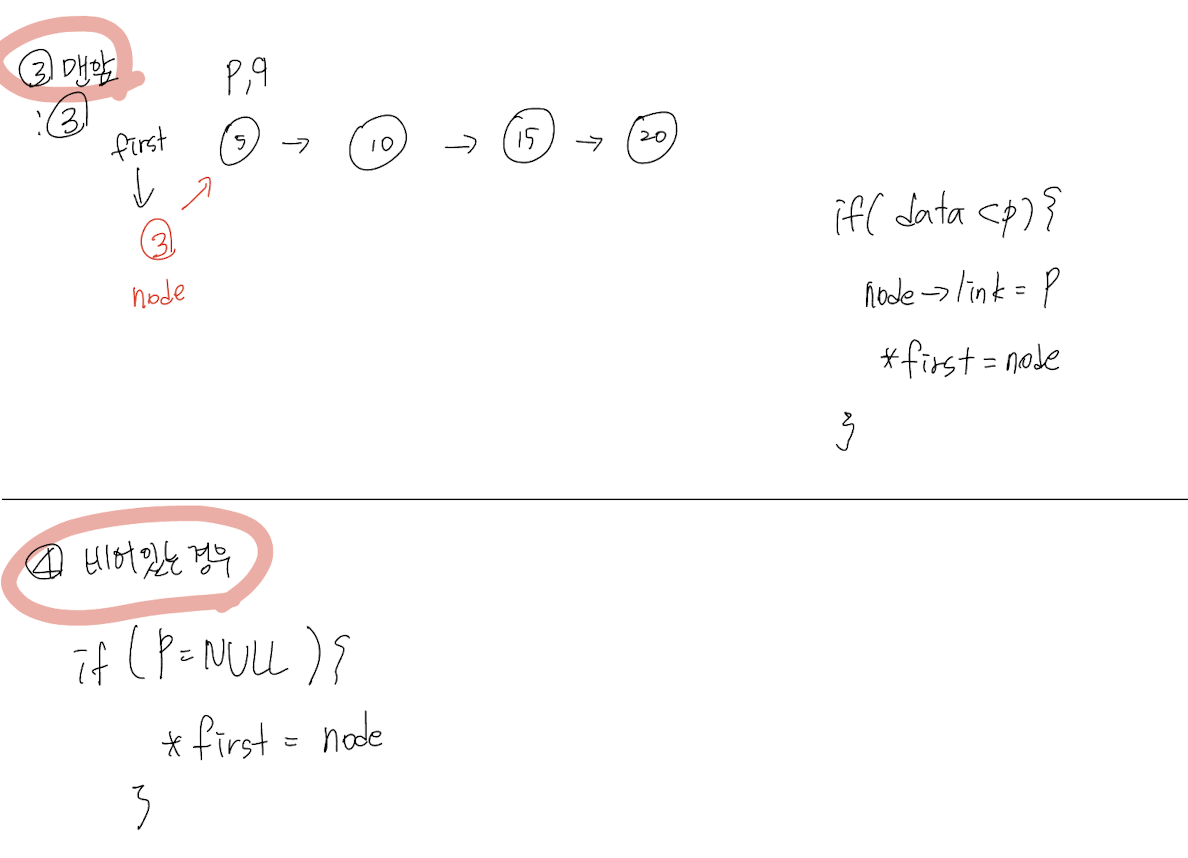 ③ 맨앞
: ③
p,q
first ⑤ → ⑩ → ⑮ → ⑳
↓ ↗
③
node
if( data <p){
node→link = P
*first = node
}
④ 비어있는 경우
if (P=NULL){
*first = node
}